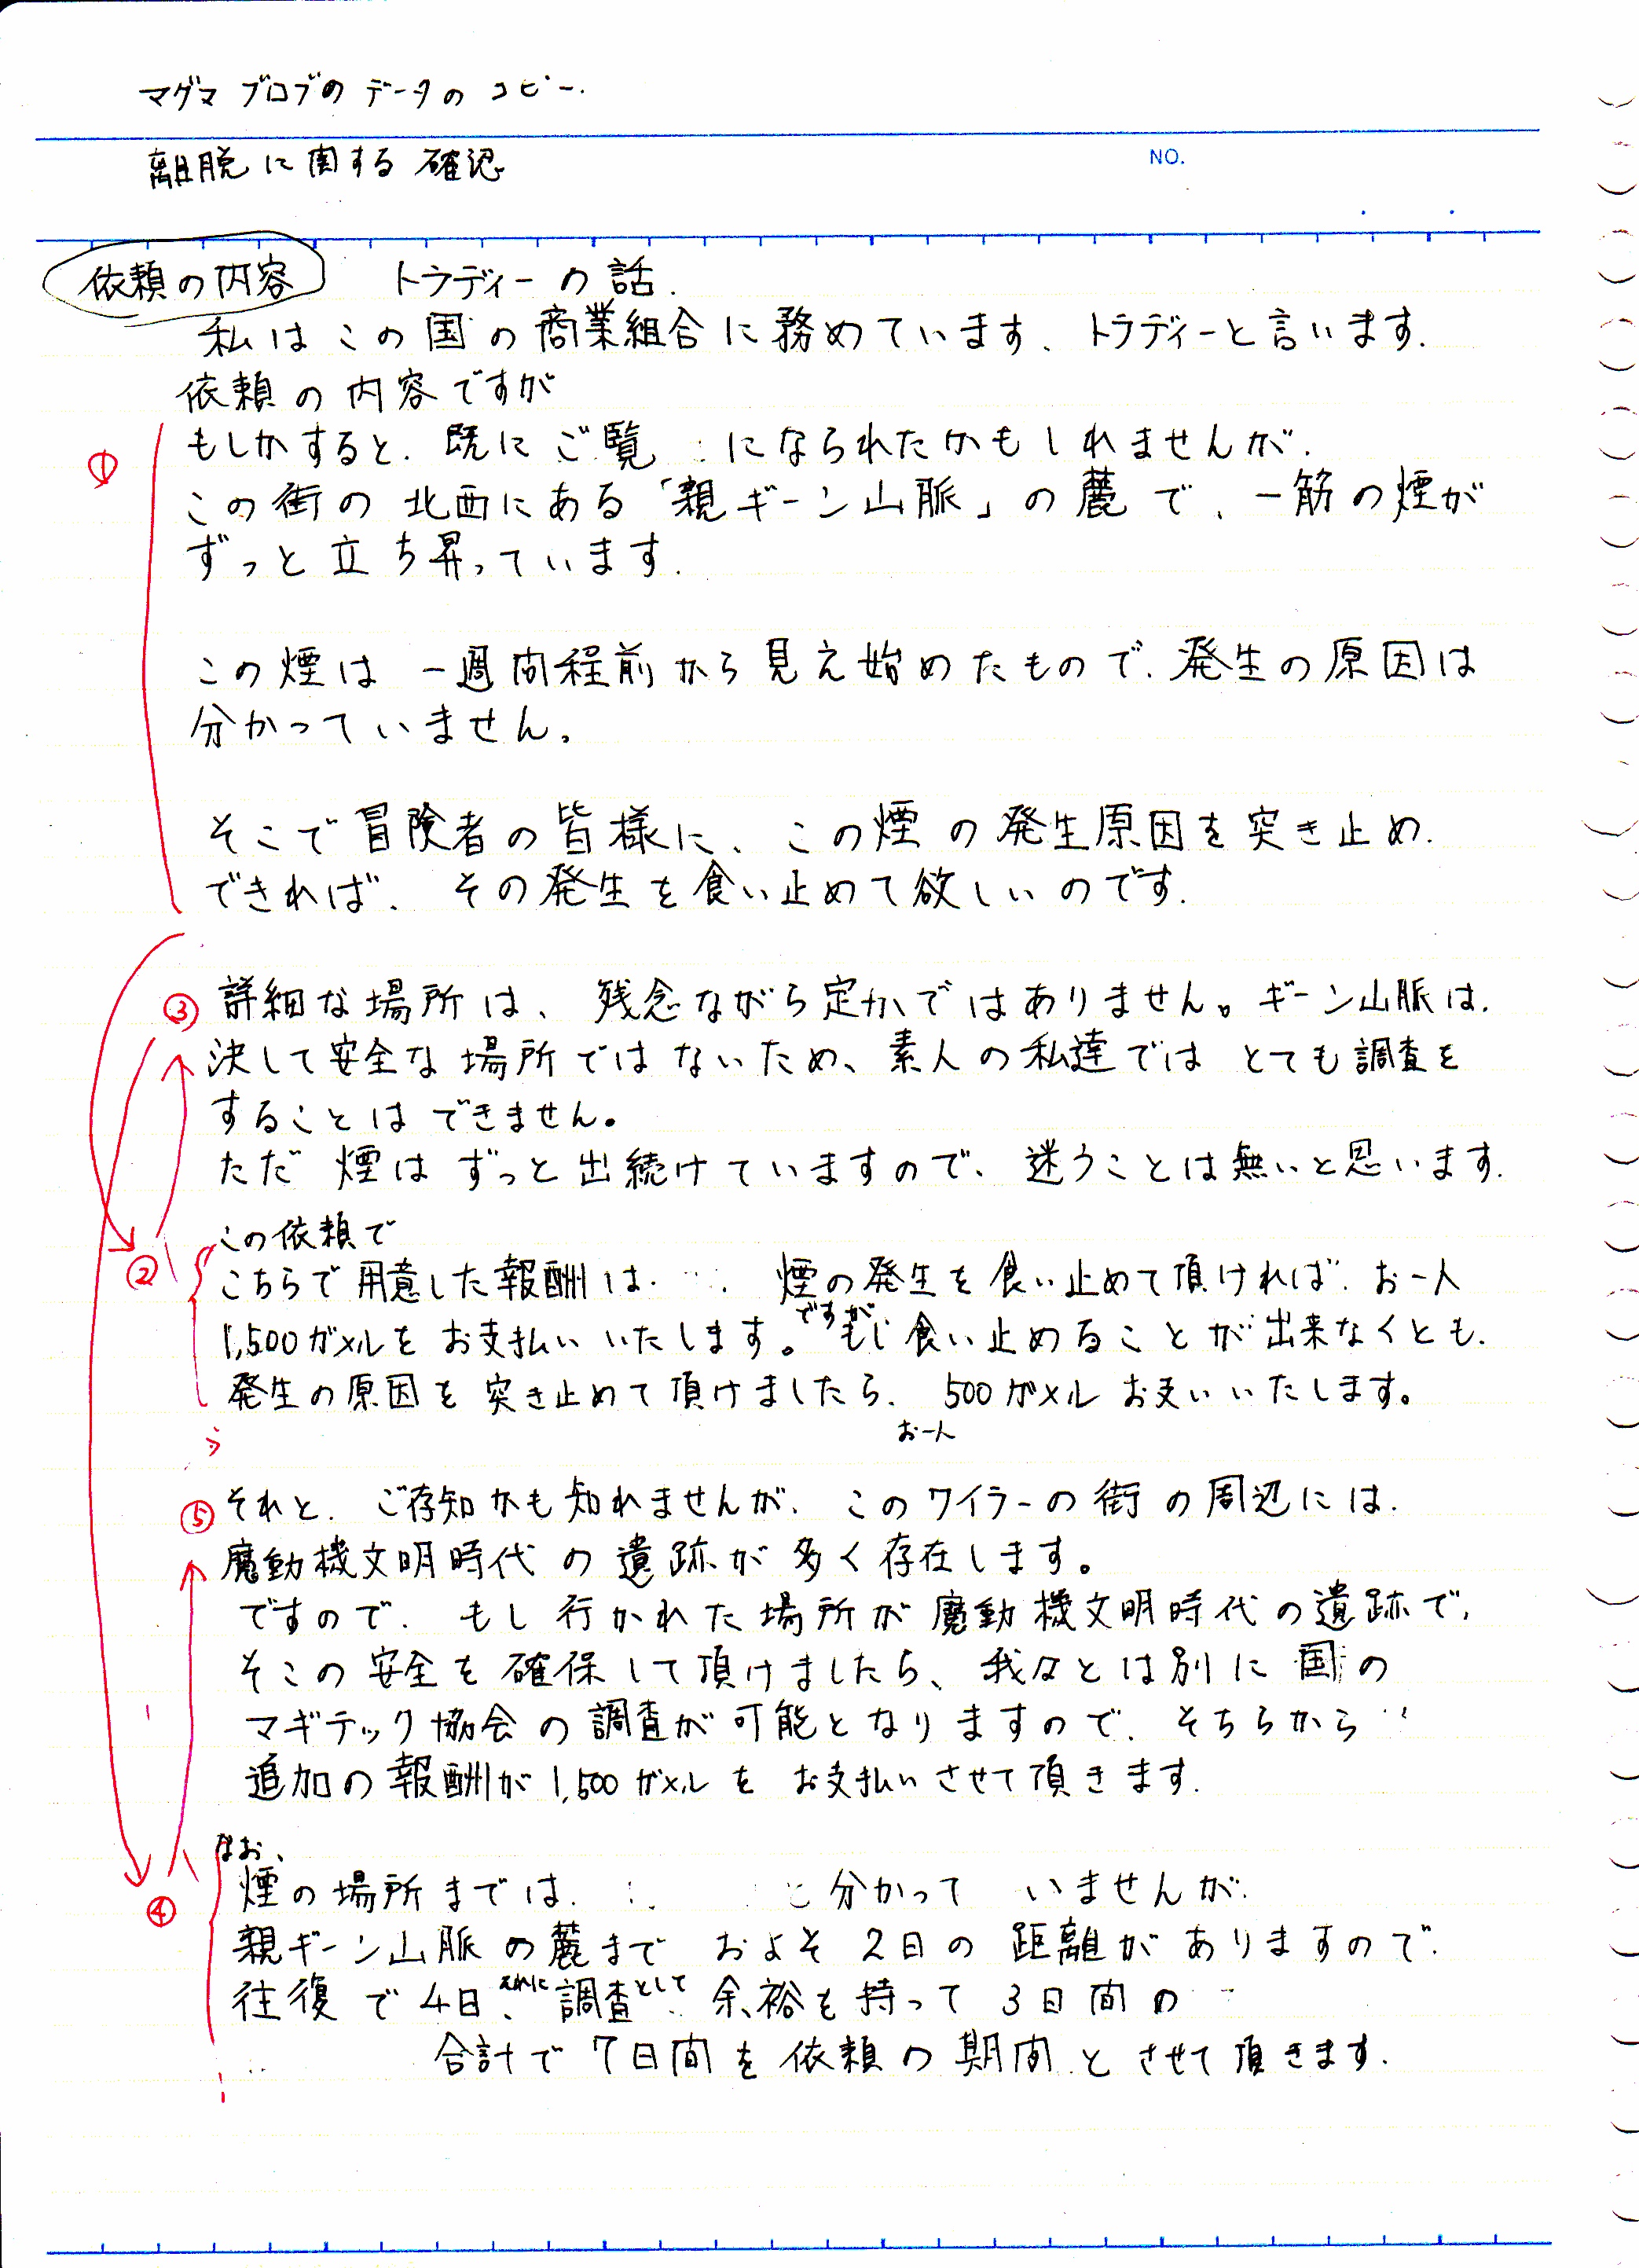 マグマブロブのデータのコピー.
離脱に関する確認
NO.
依頼の内容 トラディーの話.
私はこの国の商業組合に務めています、トラディーと言います.
依頼の内容ですが
① もしかすると、既にご覧になられたかもしれませんが、
この街の北西にある「親ギーン山脈」の麓で、一筋の煙が
ずっと立ち昇っています.
この煙は一週間程前から見え始めたもので、発生の原因は
分かっていません。
そこで冒険者の皆様に、この煙の発生原因を突き止め、
できれば、その発生を食い止めて欲しいのです.
③ 詳細な場所は、残念ながら定かではありません。ギーン山脈は、
決して安全な場所ではないため、素人の私達ではとても調査を
することはできません。
ただ煙はずっと出続けていますので、迷うことは無いと思います.
この依頼で
② こちらで用意した報酬は、煙の発生を食い止めて頂ければ、お一人
1,500ガメルをお支払いいたします。ですがもし食い止めることが出来なくとも、
発生の原因を突き止めて頂けましたら、500ガメルお支いいたします。
お一人
⑤ それと、ご存知かも知れませんが、このワイラーの街の周辺には、
魔動機文明時代の遺跡が多く存在します。
ですので、もし行かれた場所が魔動機文明時代の遺跡で、
そこの安全を確保して頂けましたら、我々とは別に国の
マギテック協会の調査が可能となりますので、そちらから
追加の報酬が1,500ガメルをお支払いさせて頂きます.
なお、
④ 煙の場所までは、分かっていませんが、
親ギーン山脈の麓までおよそ2日の距離がありますので、
往復で4日、それに調査として余裕を持って3日間の
合計で7日間を依頼の期間とさせて頂きます.